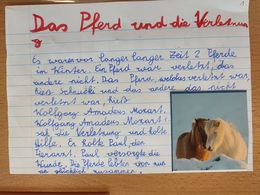 1
Das Pferd und die Verletzun
g
Es waren vor langer langer Zeit 2 Pferde
im Winter. Ein Pferd war verletzt, das
andere nicht. Das Pferd, welches verletzt war,
hies Schnucki und das andere das nicht
verletzt war, hieß
Wolfgang Amadeus Mozart.
Wolfgang Amadeus Mozart
sah die Verletzung und holte
Hilfe. Er holte Paul den
Tierarzt. Paul versorgte die
Wunde. Die Pferde lebten von nun
an glücklich zusammen.